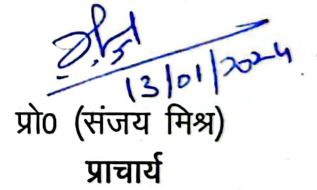 13/01/2024
प्रो0 (संजय मिश्र)
प्राचार्य